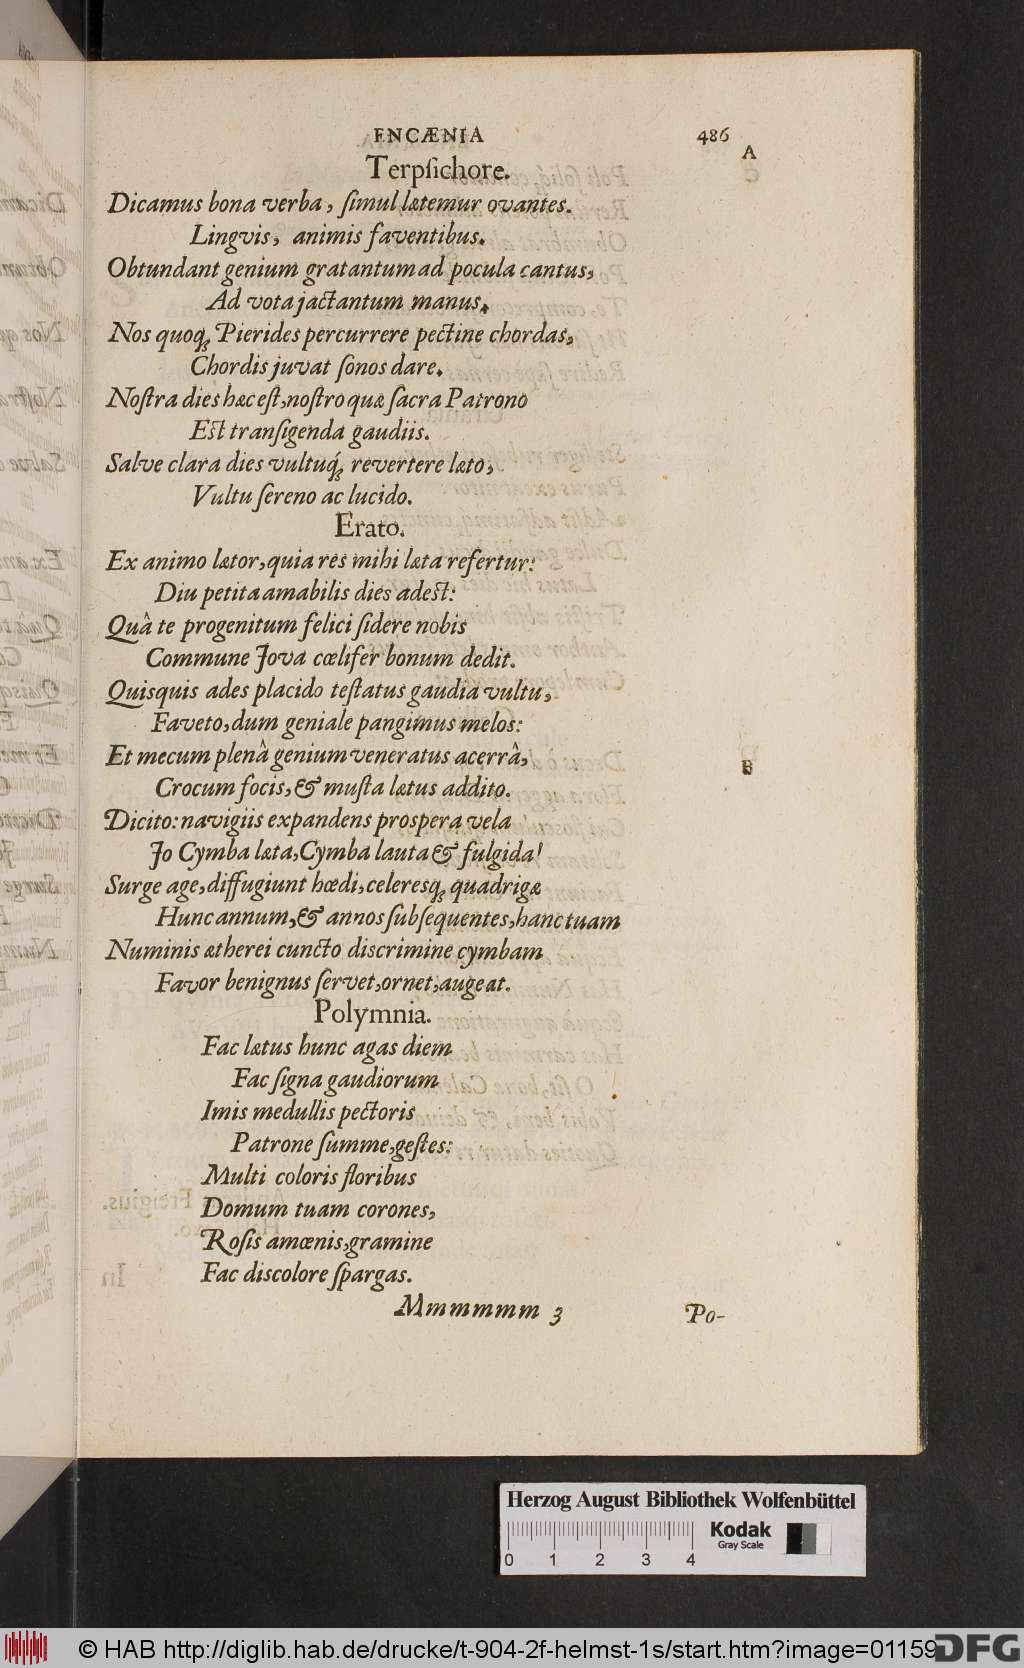 ENCÆNIA 486
A
Terpſichore.
Dicamus bona verba, ſimul lætemur ovantes.
Lingvis, animis faventibus.
Obtundant genium gratantum ad pocula cantus,
Ad vota jactantum manus.
Nos quoq; Pierides percurrere pectine chordas,
Chordis juvat ſonos dare.
Noſtra dies hæc eſt, noſtro quæ ſacra Patrono
Eſt tranſigenda gaudiis.
Salve clara dies vultuq́; revertere læto,
Vultu ſereno ac lucido.
Erato.
Ex animo lætor, quia res mihi læta refertur:
Diu petita amabilis dies adeſt:
Quâ te progenitum felici ſidere nobis
Commune Jova cœlifer bonum dedit.
Quisquis ades placido teſtatus gaudia vultu,
Faveto, dum geniale pangimus melos:
Et mecum plenâ genium veneratus acerrâ,
B
Crocum focis, & muſta lætus addito.
Dicito: navigiis expandens proſpera vela
Jo Cymba læta, Cymba lauta & fulgida!
Surge age, diffugiunt hœdi, celeresq; quadrigæ
Hunc annum, & annos ſubſequentes, hanc tuam
Numinis ætherei cuncto discrimine cymbam
Favor benignus ſervet, ornet, augeat.
Polymnia.
Fac lætus hunc agas diem
Fac ſigna gaudiorum
Imis medullis pectoris
Patrone ſumme, geſtes:
Multi coloris floribus
Domum tuam corones,
Roſis amœnis, gramine
Fac discolore ſpargas.
Mmmmmmm 3 Po-
Herzog August Bibliothek Wolfenbüttel
0 1 2 3 4
Kodak
Gray Scale
© HAB http://diglib.hab.de/drucke/t-904-2f-helmst-1s/start.htm?image=01159
DFG